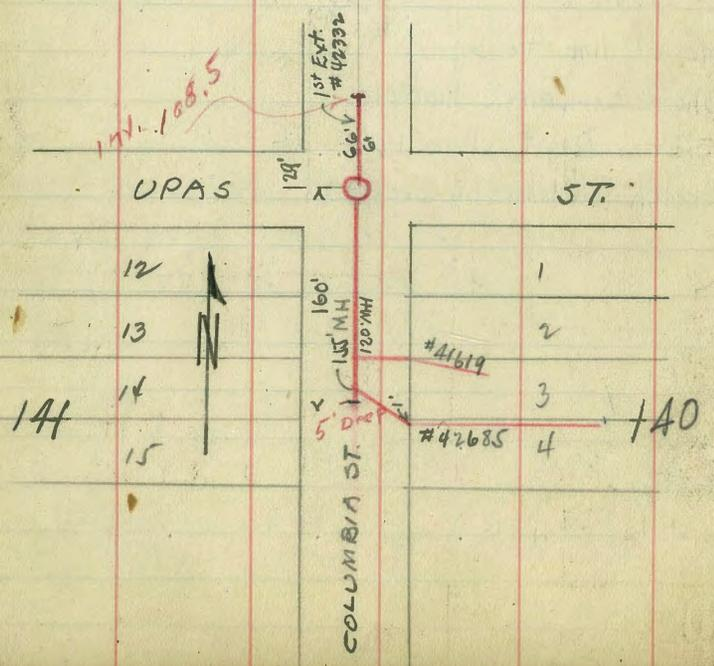 1st Ext.
#42332
Inv. 108.5
66' V
6"
129'
UPAS
ST.
12
13
14
15
141
N
160'
155' MH
120' MH
#41619
5' Deep
#42685
1
2
3
4
140
COLUMBIA ST.